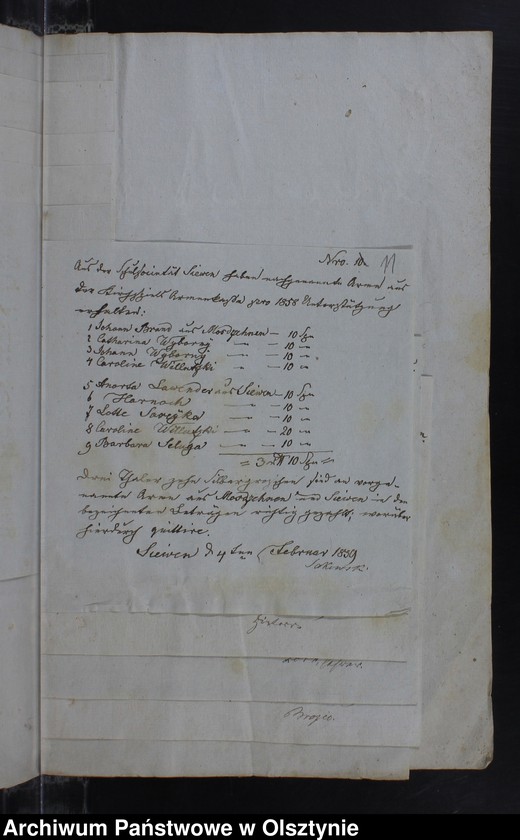 Nro. 10. 11
Aus der Schulsocietät Siewen haben nachgenannte Arme aus
der Kirchspiels Armenkasse pro 1858 Unterstützung
erhalten:
1 Johann Brand aus Moszchnen – 10 Sgr
2 Catharina Wyborny — " – 10 —
3 Johann Wyborny — " – 10 —
4 Caroline Willutzki — " – 10 —
5 Anorta Lawender aus Siewen – 10 Sgr
6 Harnack — " – 10 —
7 Lotte — " – 10 —
8 Caroline Willutzki — " – 20 —
9 Barbara Seluga — " – 10 —
= 3 10 Sgr =
Drei Thaler zehn Silbergroschen sind an vorge-
nannte Arme aus Moszchnen und Siewen in den
bezeichneten Beträgen richtig gezahlt, worüber
hierdurch quittire.
Siewen d 4ten Februar 1839
Archiwum Państwowe w Olsztynie